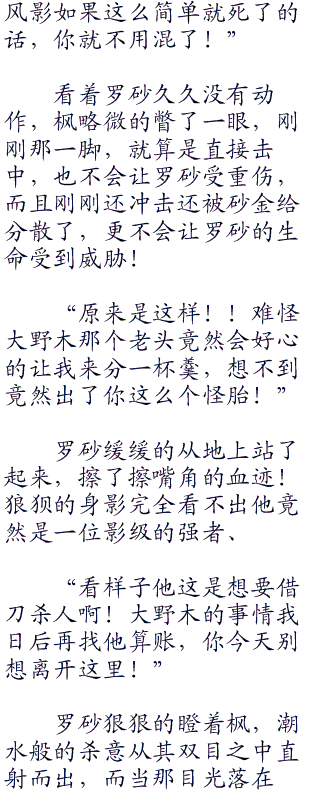 风影如果这么简单就死了的
话，你就不用混了！”
看着罗砂久久没有动
作，枫略微的瞥了一眼，刚
刚那一脚，就算是直接击
中，也不会让罗砂受重伤，
而且刚刚还冲击还被砂金给
分散了，更不会让罗砂的生
命受到威胁！
“原来是这样！！难怪
大野木那个老头竟然会好心
的让我来分一杯羹，想不到
竟然出了你这么个怪胎！”
罗砂缓缓的从地上站了
起来，擦了擦嘴角的血迹！
狼狈的身影完全看不出他竟
然是一位影级的强者、
“看样子他这是想要借
刀杀人啊！大野木的事情我
日后再找他算账，你今天别
想离开这里！”
罗砂狠狠的瞪着枫，潮
水般的杀意从其双目之中直
射而出，而当那目光落在